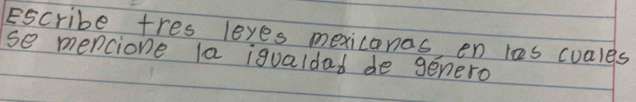 Escribe tres leyes mexicanas en las cuales
se mencione la igualdad de género